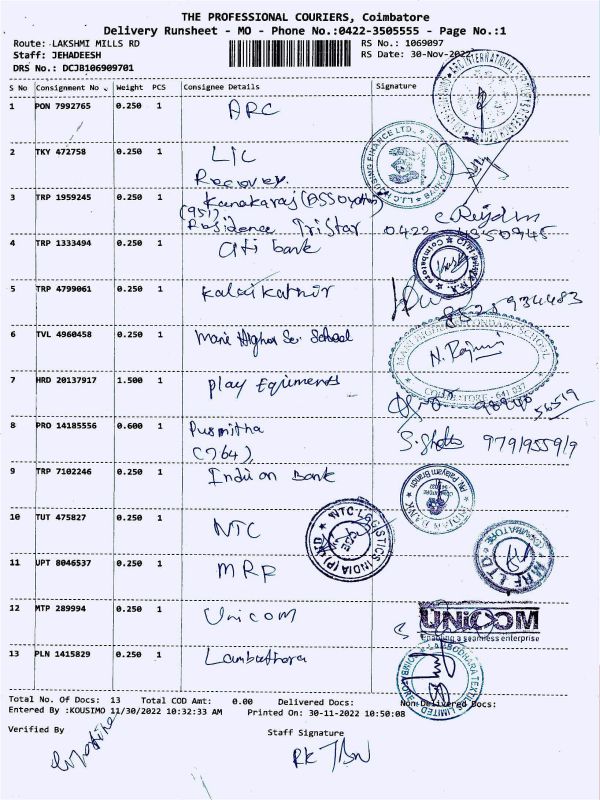 THE PROFESSIONAL COURIERS, Coimbatore
Delivery Runsheet - MO - Phone No.:0422-3505555 - Page No.:1
Route: LAKSHMI MILLS RD RS No.: 1069097
Staff: JEHADEESH RS Date: 30-Nov-2022
DRS No.: DCJB106909701
S No Consignment No Weight PCS Consignee Details Signature
1 PON 7992765 0.250 1 ARC
2 TKY 472758 0.250 1 LIC
3 TRP 1959245 0.250 1 Kanakaraj
(951)
Residence Tristar 0422 4350945
4 TRP 1333494 0.250 1 Citi bank
5 TRP 4799061 0.250 1 Kalaikathir
934483
6 TVL 4960458 0.250 1 Mani Higher Sec School
N. Rajini
COIMBATORE - 641 037
7 HRD 20137917 1.500 1 Play Equiments
56519
8 PRO 14185556 0.600 1 Pusmitha
(764) 9791955919
9 TRP 7102246 0.250 1 Indian Bank
INDIAN BANK
10 TUT 475827 0.250 1 NTC
NTC LOGISTICS INDIA (P) LTD
11 UPT 8046537 0.250 1 MRF
MRF LTD
12 MTP 289994 0.250 1 Unicom
UNICOM
Enabling a seamless enterprise
13 PLN 1415829 0.250 1
Total No. Of Docs: 13 Total COD Amt: 0.00 Delivered Docs: Non-Delivered Docs:
Entered By :KOUSIMO 11/30/2022 10:32:33 AM Printed On: 30-11-2022 10:50:08
Verified By Staff Signature